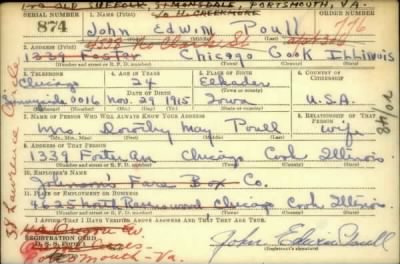 OLD SUFFOLK, SIMONSDALE, PORTSMOUTH, VA.
SERIAL NUMBER 1. NAME (Print)
874 John Edwin Powell
(First) (Middle) (Last)
2. ADDRESS (Print)
Chicago Cook Illinois
(Number and street or R. F. D. number) (Town) (County) (State)
3. TELEPHONE 4. AGE IN YEARS 5. PLACE OF BIRTH 6. COUNTRY OF CITIZENSHIP
Chicago 24 Elkader
DATE OF BIRTH (Town or county)
Sunnyside 0016 Nov. 29 1915 Iowa U.S.A.
(Mo.) (Day) (Yr.) (State or country)
7. NAME OF PERSON WHO WILL ALWAYS KNOW YOUR ADDRESS 8. RELATIONSHIP OF THAT PERSON
Mrs. Dorothy May Powell wife
(Mr., Mrs., Miss) (First) (Middle) (Last)
9. ADDRESS OF THAT PERSON
1339 Foster Ave Chicago Cook Illinois
(Number and street or R. F. D. number) (Town) (County) (State)
10. EMPLOYER'S NAME
Johnson Fare Box Co.
11. PLACE OF EMPLOYMENT OR BUSINESS
4625 North Ravenswood Chicago Cook Illinois
(Number and street or R. F. D. number) (Town) (County) (State)
I AFFIRM THAT I HAVE VERIFIED ABOVE ANSWERS AND THAT THEY ARE TRUE.
REGISTRATION CARD
Portsmouth-Va.
John Edwin Powell
(Registrant's signature)